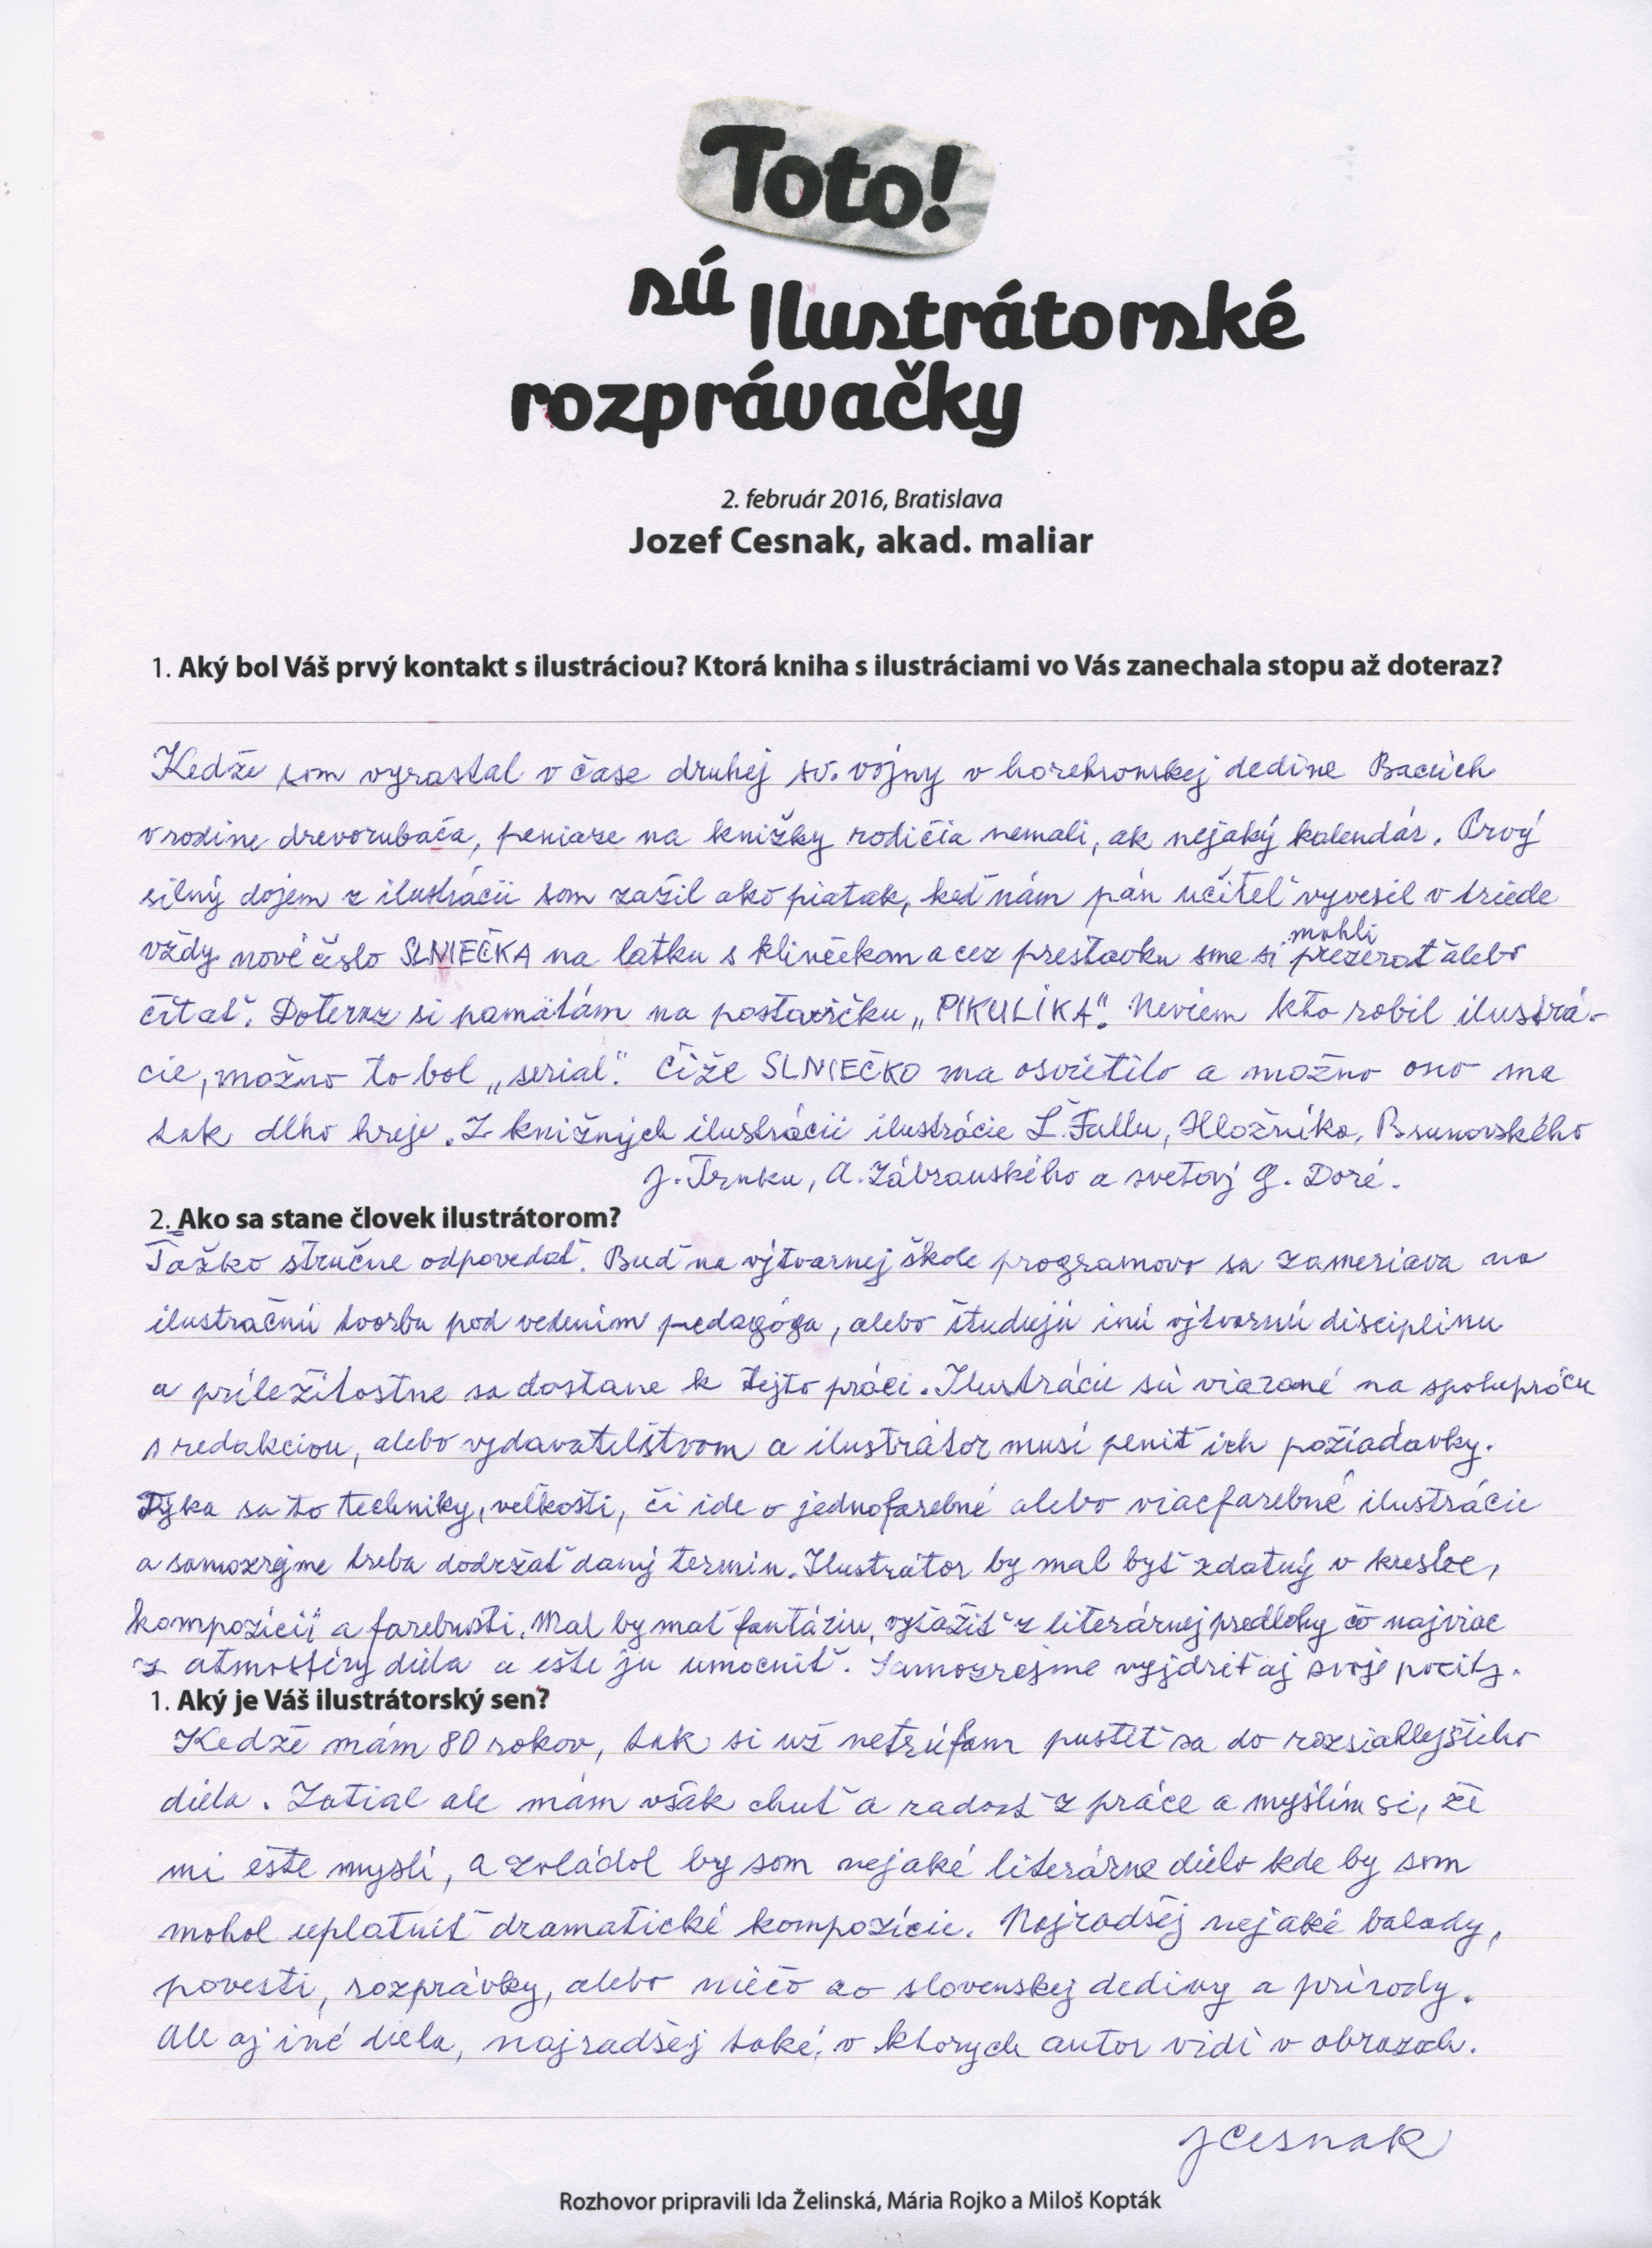 Toto!
sú Ilustrátorské
rozprávačky
2. február 2016, Bratislava
Jozef Cesnak, akad. maliar
1. Aký bol Váš prvý kontakt s ilustráciou? Ktorá kniha s ilustráciami vo Vás zanechala stopu až doteraz?
Kedže som vyrastal v čase druhej sv. vojny v horehronskej dedine Bacúch
v rodine drevorubača, peniaze na knižky rodičia nemali, ak nejaký kalendár. Prvý
silný dojem z ilustrácii som zažil ako piatak, keď nám pán učiteľ vyvesil v triede
vždy nové čislo SLNIEČKA na latku s klinčekom a cez prestavku sme si mohli prezerať alebo
čítať. Doteraz si pamätám na postavičku „PIKULÍKA". Neviem kto robil ilustrá-
cie, možno to bol „serial". Čiže SLNIEČKO ma osvietilo a možno ono ma
tak dlho hreje. Z knižných ilustrácii ilustrácie Ľ. Fullu, Hložníka, Brunovského
J. Trnku, A. Zábranského a svetový G. Doré.
2. Ako sa stane človek ilustrátorom?
Ťažko stručne odpovedať. Buď na výtvarnej škole programovo sa zameriava na
ilustračnú tvorbu pod vedením pedagóga, alebo študujú inú výtvarnú disciplinu
a príležitostne sa dostane k tejto práci. Ilustrácie sú viazané na spoluprácu
s redakciou, alebo vydavateľstvom a ilustrátor musí plniť ich požiadavky.
Týka sa to techniky, veľkosti, či ide o jednofarebné alebo viacfarebné ilustrácie
a samozrejme treba dodržať daný termin. Ilustrátor by mal byť zdatný v kresbe,
kompozícií a farebnosti. Mal by mať fantáziu, vyťažiť z literárnej predlohy čo najviac
z atmosféry diela a ešte ju umocniť. Samozrejme vyjdriť aj svoje pocity.
1. Aký je Váš ilustrátorský sen?
Kedže mám 80 rokov, tak si už netrúfam pustiť sa do rozsiahlejšieho
diela. Zatiaľ ale mám však chuť a radosť z práce a myslím si, že
mi ešte myslí, a zvládol by som nejaké literárne dielo kde by som
mohol uplatniť dramatické kompozície. Najradšej nejaké balady,
povesti, rozprávky, alebo niečo zo slovenskej dediny a prírody.
Ale aj iné diela, najradšej také, v ktorych autor vidí v obrazoch.
JCesnak
Rozhovor pripravili Ida Želinská, Mária Rojko a Miloš Kopták